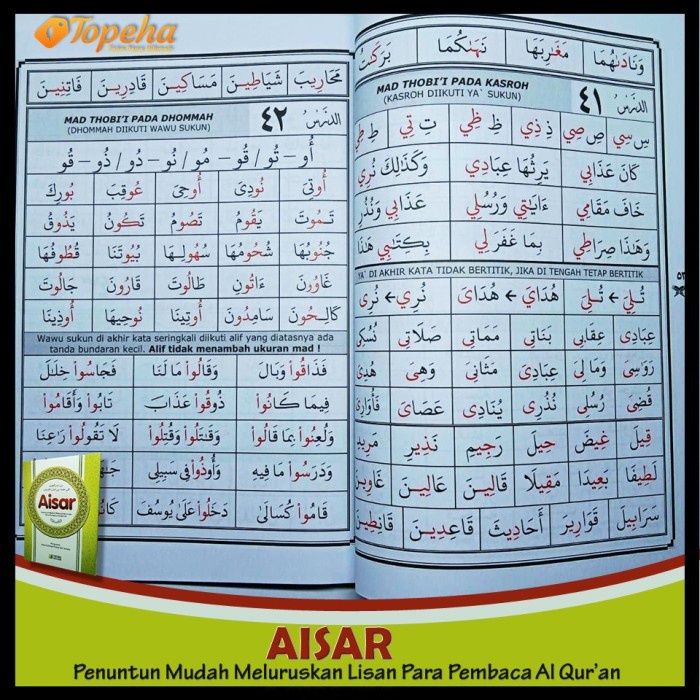 Topeha
وَنَادَىٰهُمَا مَغَارِبَهَا نَهَىٰكُمَا بَرَكَتُ
MAD THOBI'I PADA KASROH
(KASROH DIIKUTI YA` SUKUN)
الدَّرْسُ ٤١
سِ سِي صِ صِي ذِ ذِي ظِ ظِي تِ تِي طِ طِي
كَانَ عَذَابِي يَرِثُهَا عِبَادِي وَكَذَٰلِكَ نُرِي
خَافَ مَقَامِي ءَايَاتِي وَرُسُلِي عَذَابِي وَنُذُرِ
وَهَٰذَا صِرَاطِي بِمَا غَفَرَ لِي بِكِتَٰبِي هَٰذَا
YA` DI AKHIR KATA TIDAK BERTITIK, JIKA DI TENGAH TETAP BERTITIK
تُلِيَ ← تُلِىَ هُدَايَ ← هُدَاىَ نُرِي ← نُرِى
عِبَادِى عِقَابِى بَنَاتِى مَمَاتِى صَلَاتِى نُسُكِى
رَوَسِىَ وَمَا لِىَ عِبَادِىَ مَثَانِىَ وَهِىَ هُدَىَ
قُضِىَ رُسُلِى نُذُرِى يُنَادِى عَصَاىَ فَأُوَارِىَ
قِيلَ غِيضَ حِيلَ رَجِيمٍ نَذِيرٍ مَرِيدٍ
لَطِيفًا بَعِيدًا مَقِيلًا قَالِينَ عَالِينَ غَاوِينَ
سَرَابِيلَ قَوَارِيرَ أَحَادِيثَ قَاعِدِينَ قَانِطِينَ
٥٢
مَحَارِيبَ شَيَاطِينَ مَسَاكِينَ قَادِرِينَ فَاتِنِينَ
MAD THOBI'I PADA DHOMMAH
(DHOMMAH DIIKUTI WAWU SUKUN)
الدَّرْسُ ٤٢
أُو - تُو / قُو - مُو / نُو - دُو / ذُو - قُو
أُوتِيَ نُودِيَ أُوحِيَ عُوقِبَ بُورِكَ
تَمُوتَ يَقُومُ تَصُومُ تَكُونُ يَذُوقُ
جُنُوبُهَا شُحُومُهَا سُهُولِهَا بُيُوتَنَا قُطُوفُهَا
غَاوُونَ ءَاتُونِ طَالُوتَ قَارُونَ جَالُوتَ
كَالِحُونَ سَامِدُونَ أُوتِينَا نُوحِيهَا أُوذِينَا
Wawu sukun di akhir kata seringkali diikuti alif yang diatasnya ada
tanda bundaran kecil. Alif tidak menambah ukuran mad !
فَذَاقُوا۟ وَبَالَ وَقَالُوا۟ مَا لَنَا فَجَاسُوا۟ خِلَٰلَ
فِيمَا كَانُوا۟ ذُوقُوا۟ عَذَابَ تَابُوا۟ وَأَقَامُوا۟
وَلُعِنُوا۟ بِمَا قَالُوا۟ وَقَٰتَلُوا۟ وَقُتِلُوا۟ لَا تَقُولُوا۟ رَاعِنَا
وَدَرَسُوا۟ مَا فِيهِ وَأُوذُوا۟ فِى سَبِيلِى
قَامُوا۟ كُسَالَىٰ دَخَلُوا۟ عَلَىٰ يُوسُفَ
Aisar
AISAR
Penuntun Mudah Meluruskan Lisan Para Pembaca Al Qur'an